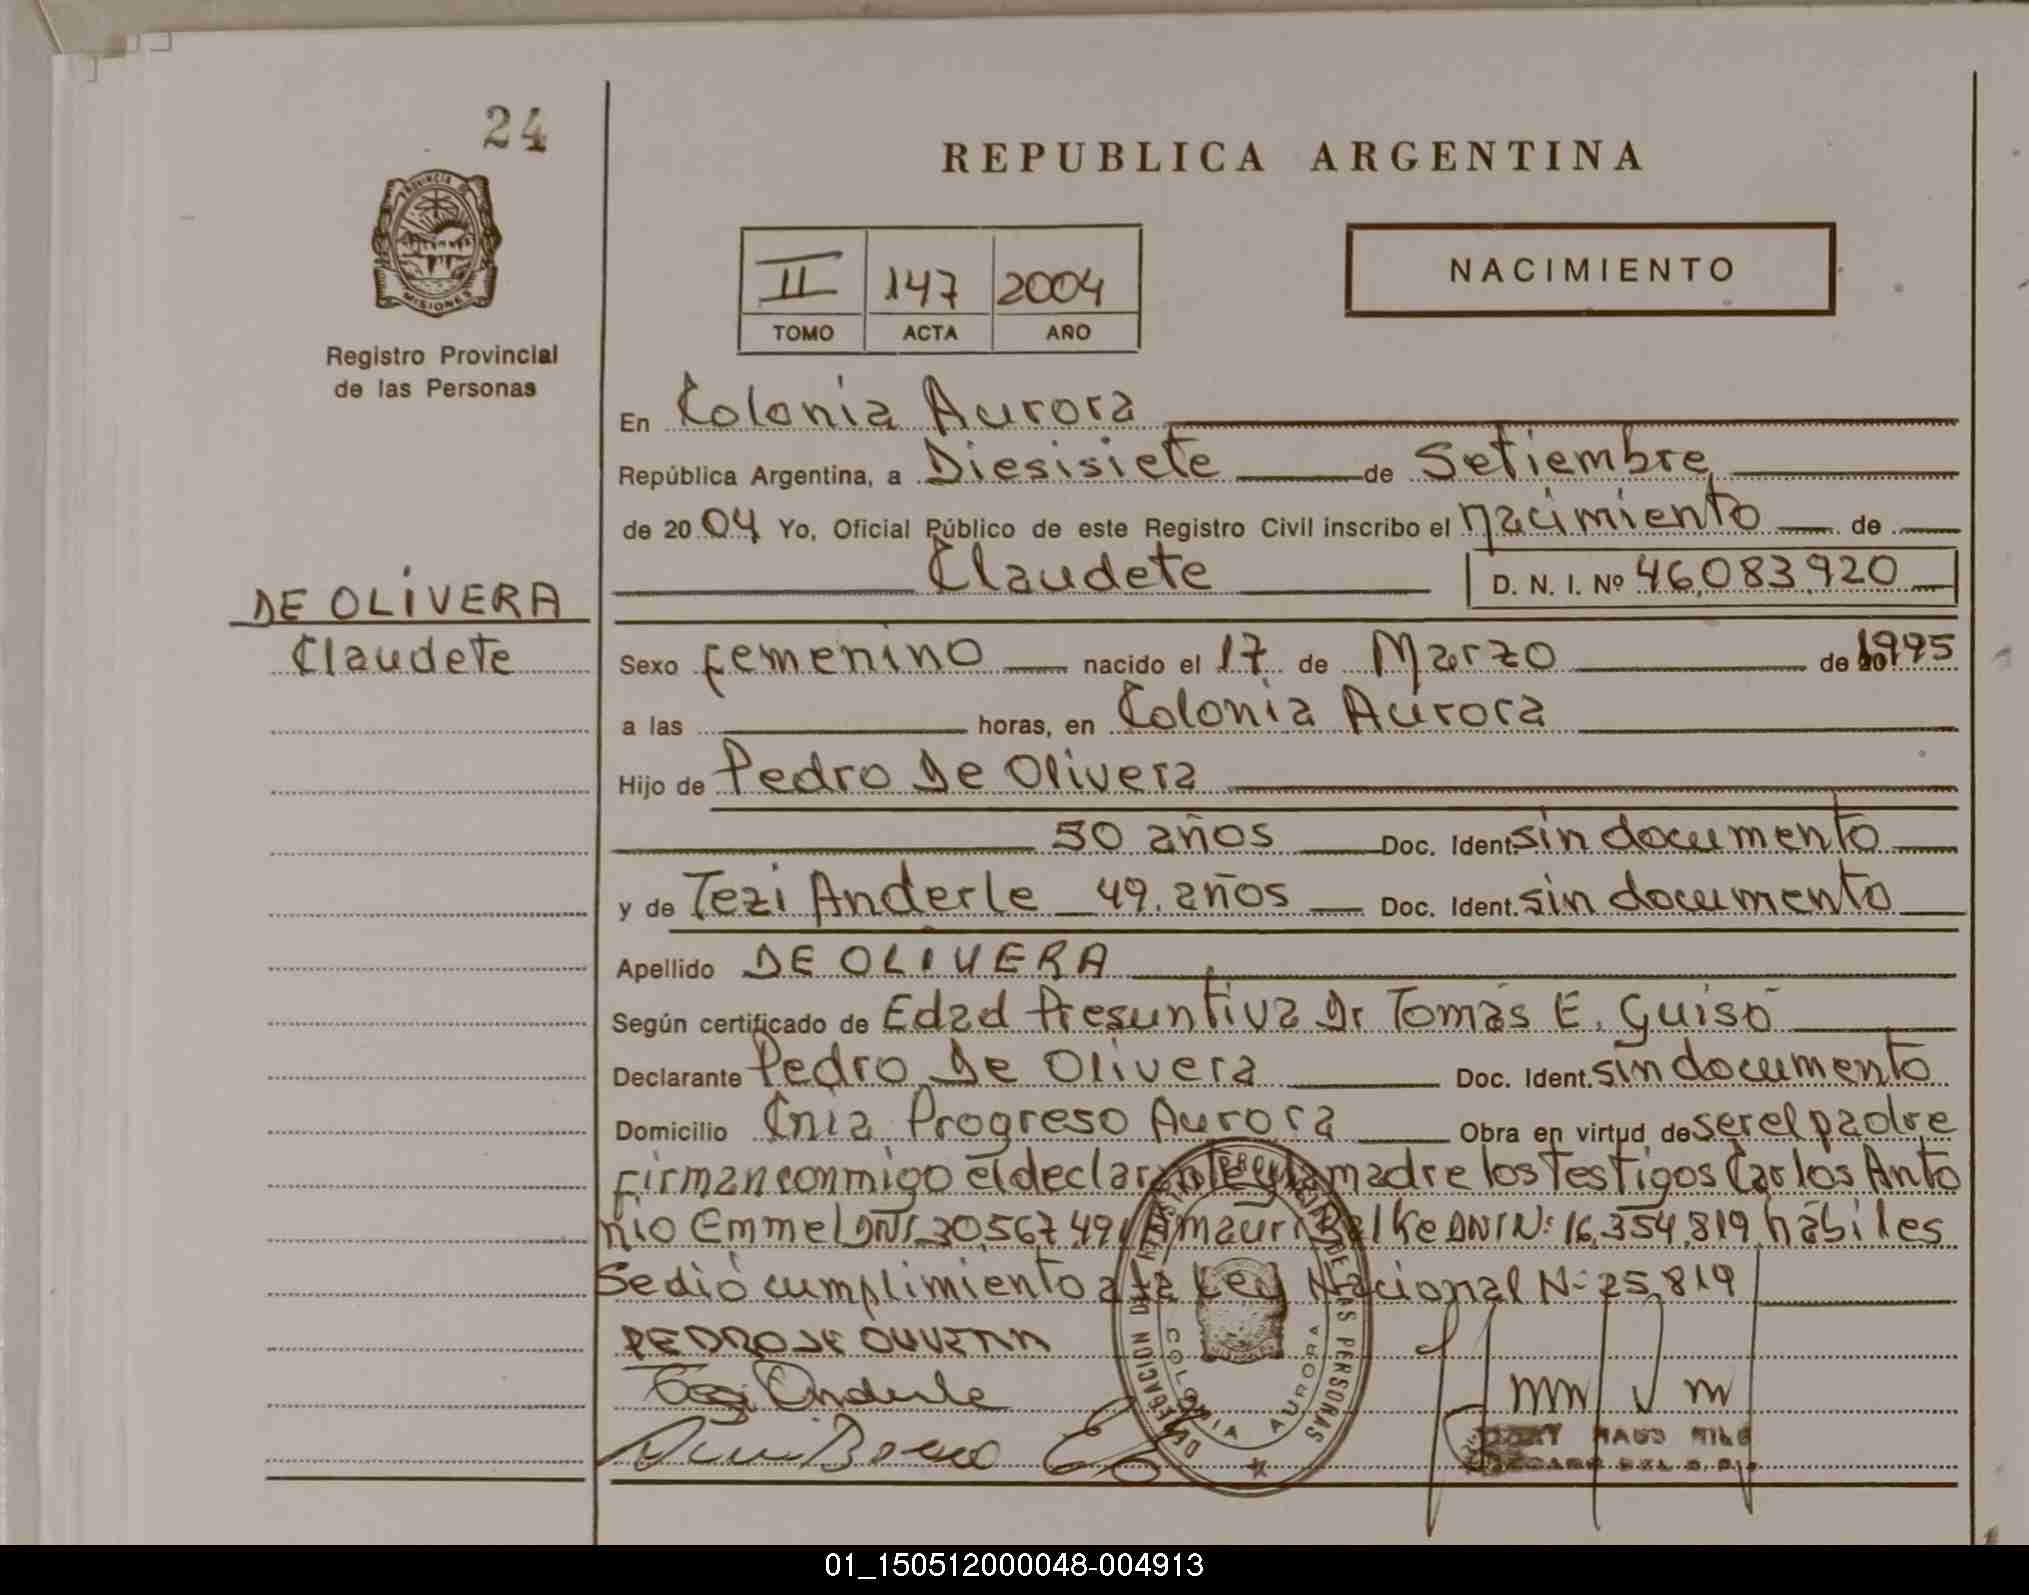 24
PROVINCIA DE
MISIONES
Registro Provincial
de las Personas
DE OLIVERA
Claudete
REPUBLICA ARGENTINA
II 147 2004
TOMO ACTA AÑO
NACIMIENTO
En Colonia Aurora
República Argentina, a Diesisiete de Setiembre
de 20 04 Yo, Oficial Público de este Registro Civil inscribo el nacimiento de
Claudete D. N. I. Nº 46,083,920
Sexo femenino nacido el 17 de Marzo de 1995
a las horas, en Colonia Aurora
Hijo de Pedro De Olivera
50 años Doc. Ident. sin documento
y de Tezi Anderle 49. años Doc. Ident. sin documento
Apellido DE OLIVERA
Según certificado de Edad Presuntiva Dr Tomás E. Guisó
Declarante Pedro De Olivera Doc. Ident. sin documento
Domicilio Cnia Progreso Aurora Obra en virtud de ser el padre
firman conmigo el declarante y la madre los testigos Carlos Anto
nio Emmel DNI 30,567,491 Amauri Balke DNI N: 16,354,819 hábiles
Se dió cumplimiento a la Ley Nacional N: 25,819
PEDRO DE OLIVERA
Tezi Anderle
DELEGACION DEL REGISTRO PROVINCIAL DE LAS PERSONAS
COLONIA AURORA
01_150512000048-004913